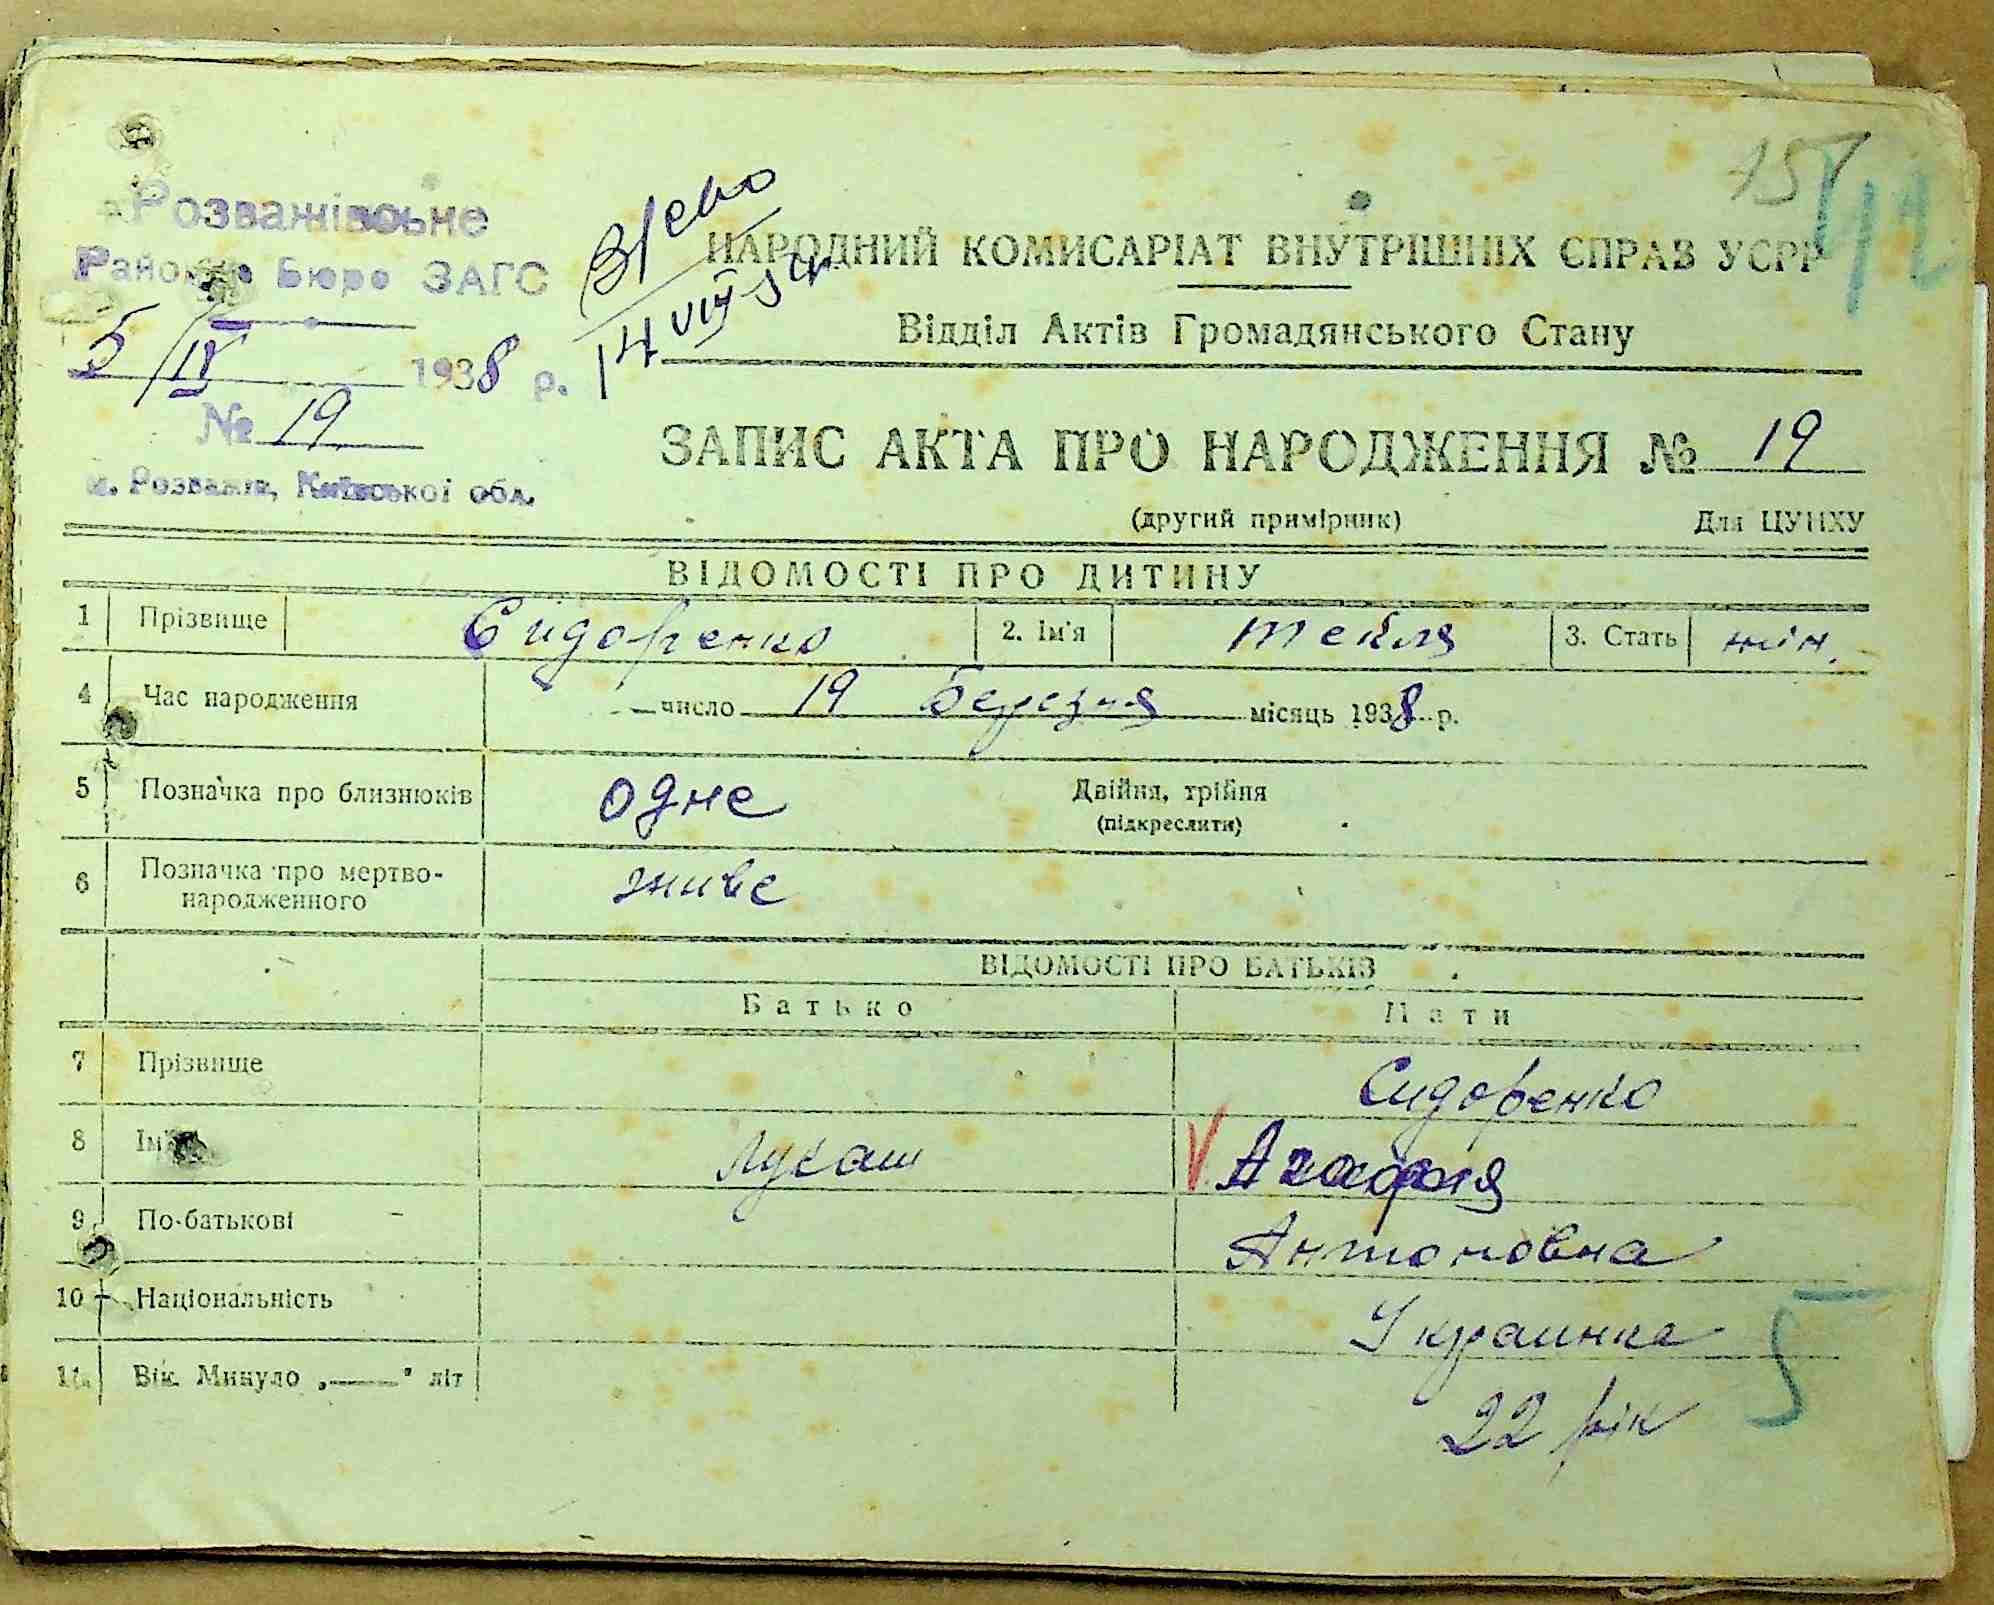 15
12
Розважівське
Районне Бюро ЗАГС
5/IV 1938 р.
№ 19
м. Розважів, Київської обл.
14 VIII 54
НАРОДНИЙ КОМІСАРІАТ ВНУТРІШНІХ СПРАВ УСРР
Відділ Актів Громадянського Стану
ЗАПИС АКТА ПРО НАРОДЖЕННЯ № 19
(другий примірник) Для ЦУНХУ
ВІДОМОСТІ ПРО ДИТИНУ
1 Прізвище Сидоренко 2. Ім'я Текля 3. Стать жін.
4 Час народження число 19 Березня місяць 1938 р.
5 Позначка про близнюків одне Двійня, трійня
(підкреслити)
6 Позначка про мертво-
народженного живе
ВІДОМОСТІ ПРО БАТЬКІВ
Батько Мати
7 Прізвище Сидоренко
8 Ім'я Лукаш V Агафія
9 По-батькові Антоновна
10 Національність Украинка
11. Вік. Минуло „——" літ 22 рік
5